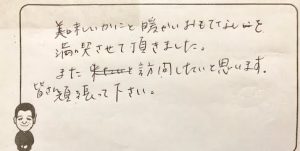 美味しいかにと暖かいおもてなし心を
満喫させて頂きました。
また訪問したいと思います。
皆さん頑張って下さい。